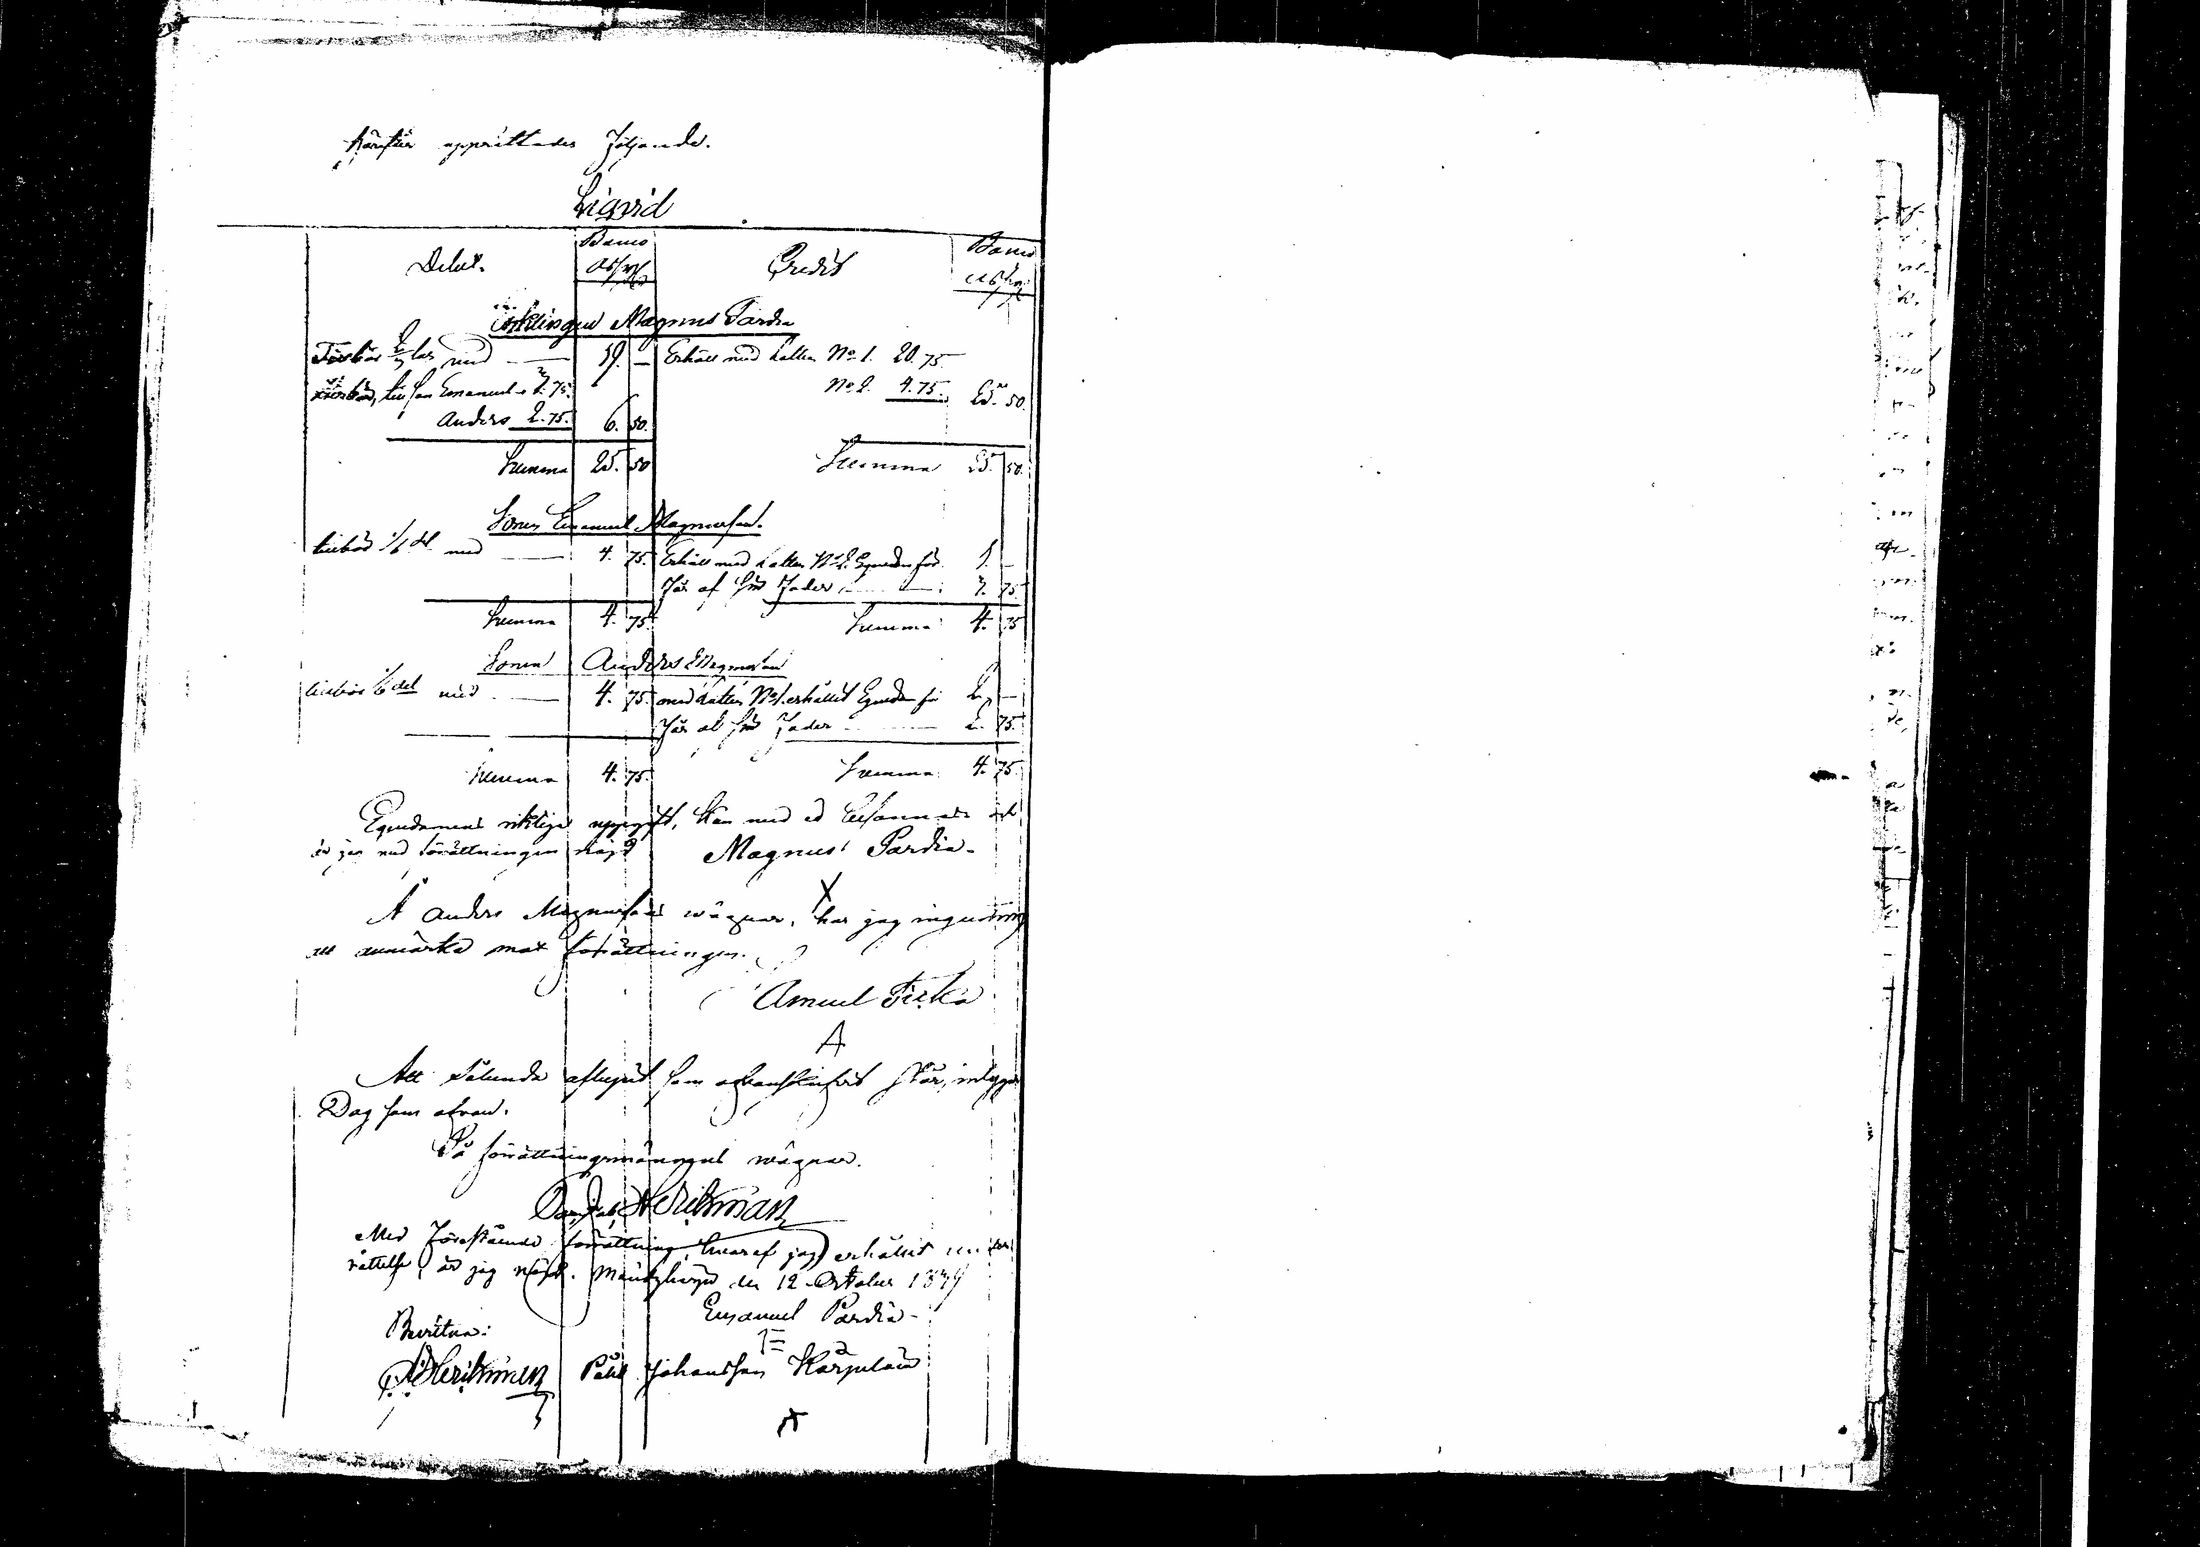 Härefter upprättades följande.
Liqvid
Debet. Banco Credit Banco
Enklingen Magnus Pardia
Tillkör 2/3 lar med — 19. — Erhåll med Lotten No 1. 20.75
till son Emanuel 3.75. No 2. 4.75. 25. 50.
Anders 2.75. 6. 50.
Summa 25. 50 Summa 25. 50.
Sonen Emanuel Magnusson.
tillkör 1/6 del med — 4. 75. Erhåll med Lotten No 2. Egendom för 1. —
Får af sin Fader — 3. 75.
Summa 4. 75. Summa 4. 75
Sonen Anders Magnusson
tillkör 1/6 del med — 4. 75. med Lotten No 1. erhållit Egendom för 2. —
Får af sin Fader — 2. 75.
Summa 4. 75. Summa 4. 75.
Egendomens riktiga uppgift, kan med ed och
är jag med förrättningen nöjd Magnus Pardia.
Å Anders Magnussons wägnar, har jag ingenting
att anmärka mot förrättningen.
Att sålunda aflupit som ofvanskrifvit står, intygar
Dag som ofvan.
På förrättningsmännens wägnar.
Med förestående förrättning, hvaraf jag erhållit under
rättelse, är jag nöjd. den 12 October 1849
Emanuel Pardia
Bevittna:
Påhl Johansson